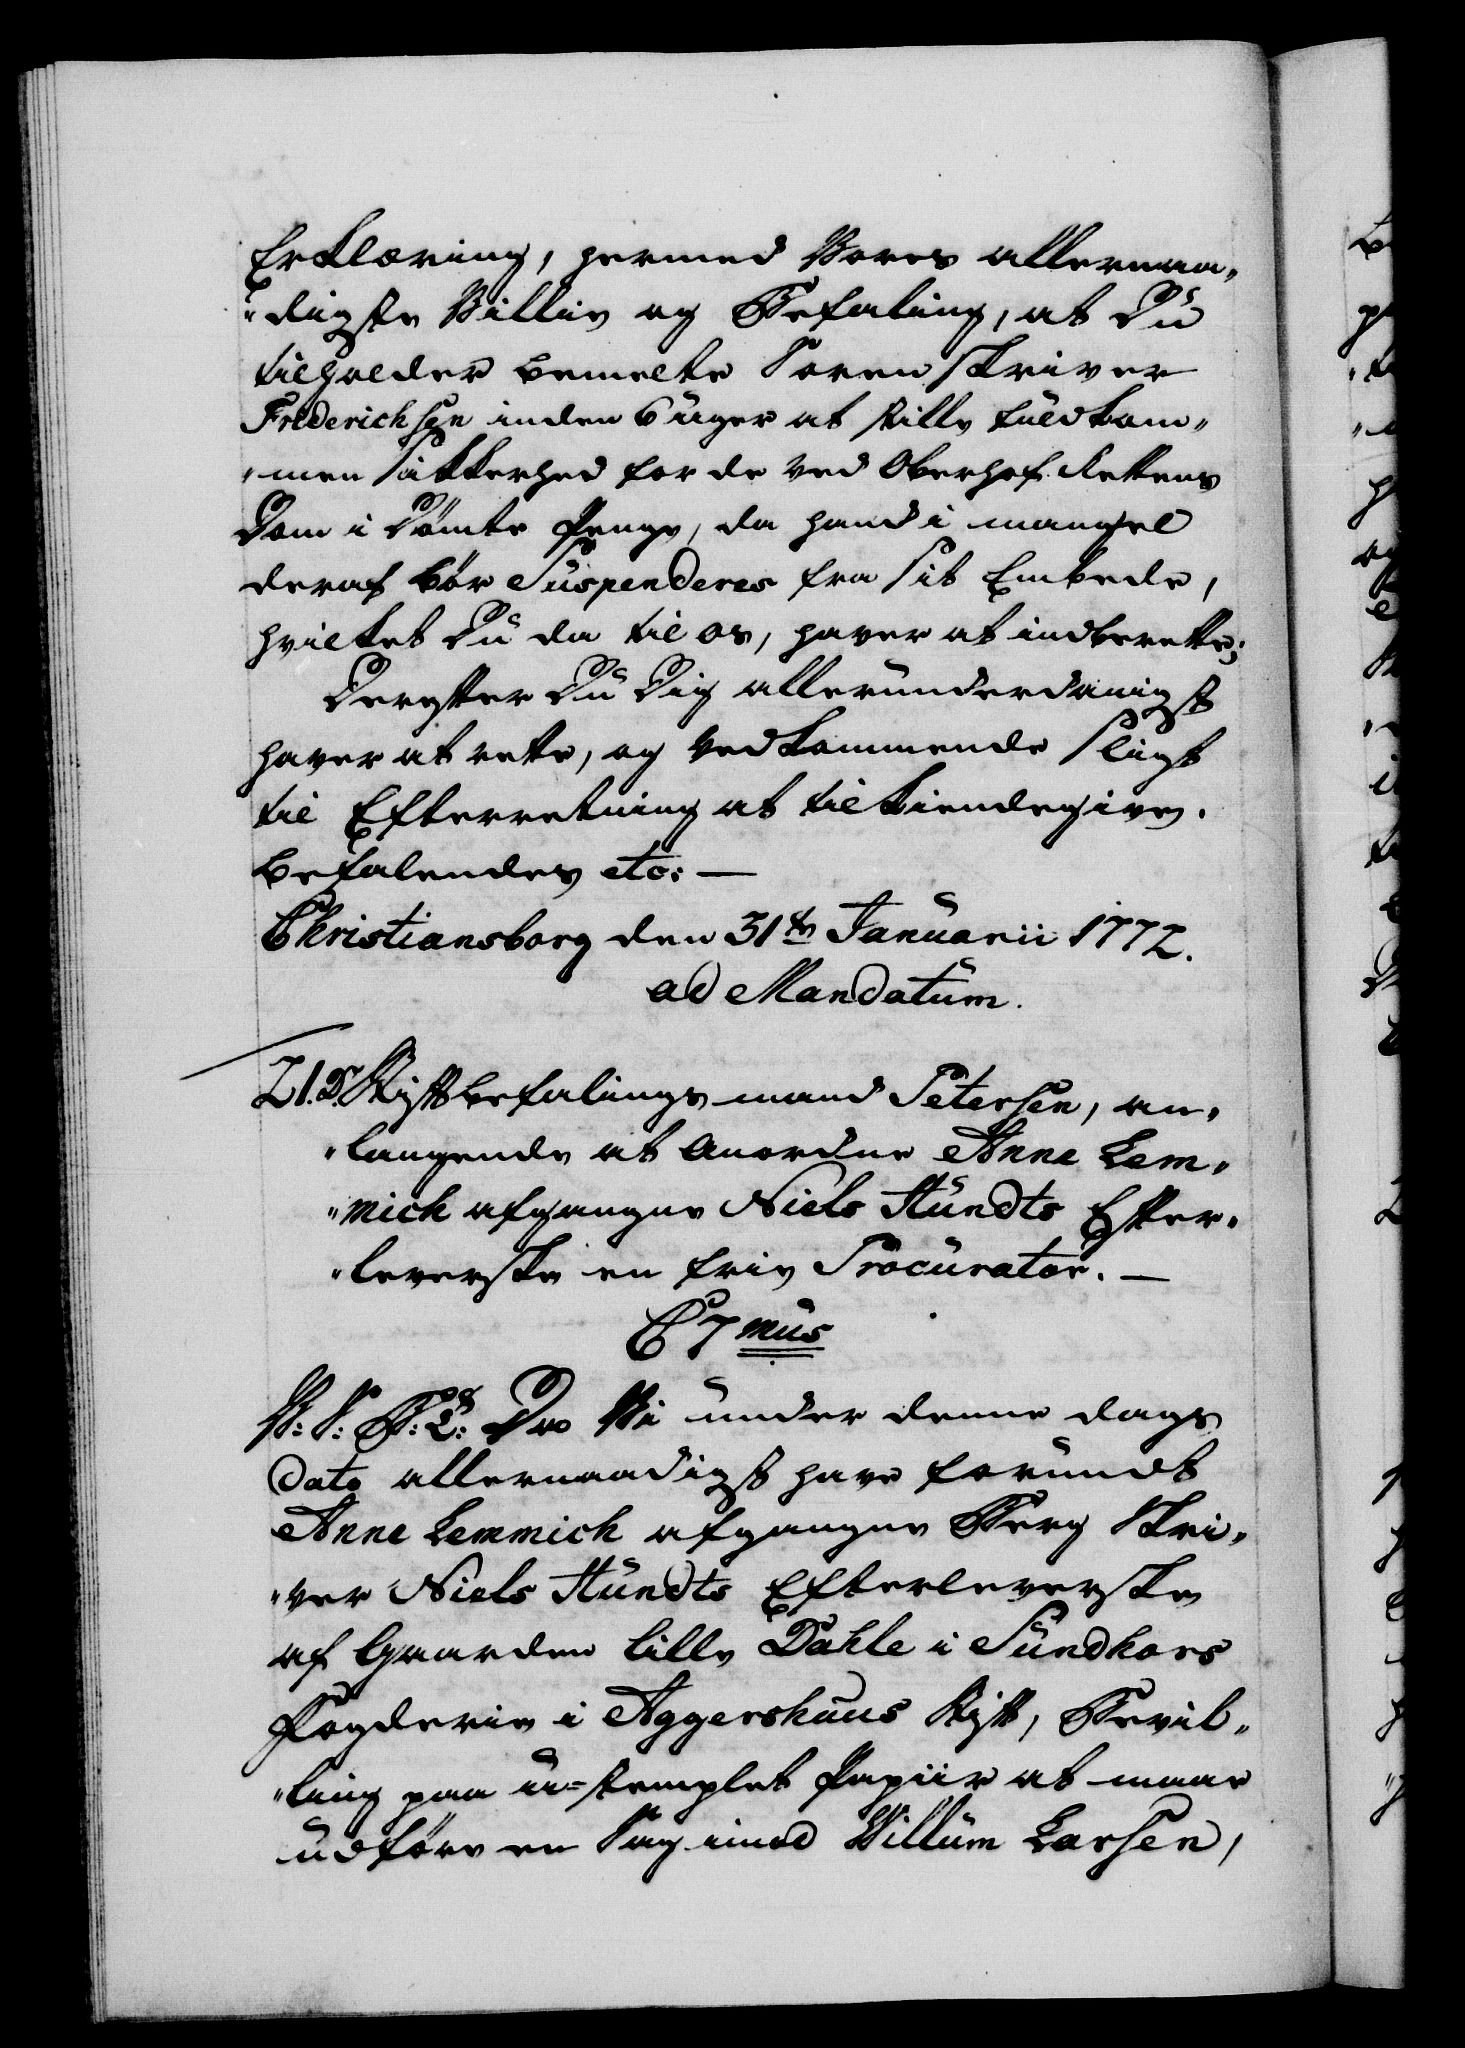 Erklæring, hermed Vores allernaa„
„digste Villie og Befaling, at Du
tilholder bemelte Sorenskriver
Friderichsen inden 6 üger at stille füldkom„
„men Sikkerhed for de ved Oberhof Rettens
Dom i Dömte Penge, da hand i mangel
deraf bör Süspenderes fra sit Embede,
hvilket Dü da til os, haver at indberette;
Derefter Dü Dig alleründerdanigst
haver at rette, og Vedkommende sligt
til Efterretning at tilkiendegive.
Befalendes etc: —
Christiansborg den 31te Januarii 1772.
ad Mandatüm.
21. Dr. Stiftbefalings mand Petersen, an„
„langende at Anordne Anne Lem„
„mich afgangne Niels Stündts Efter„
„leverske en frie Procürator. —
C 7 mus
V: S: G: T: Da Vi ünder denne dags
Dato allernaadigst have foründt
Anne Lemmich afgangne Berg Skri„
„ver Niels Stündts Efterleverske
af Gaarden lille Dahle i Sündhors
Fogderie i Aggershüus Stift, Bevil„
„ling paa ü=stemplet Papiir at maae
üdföre en Sag imod Willüm Larsen,